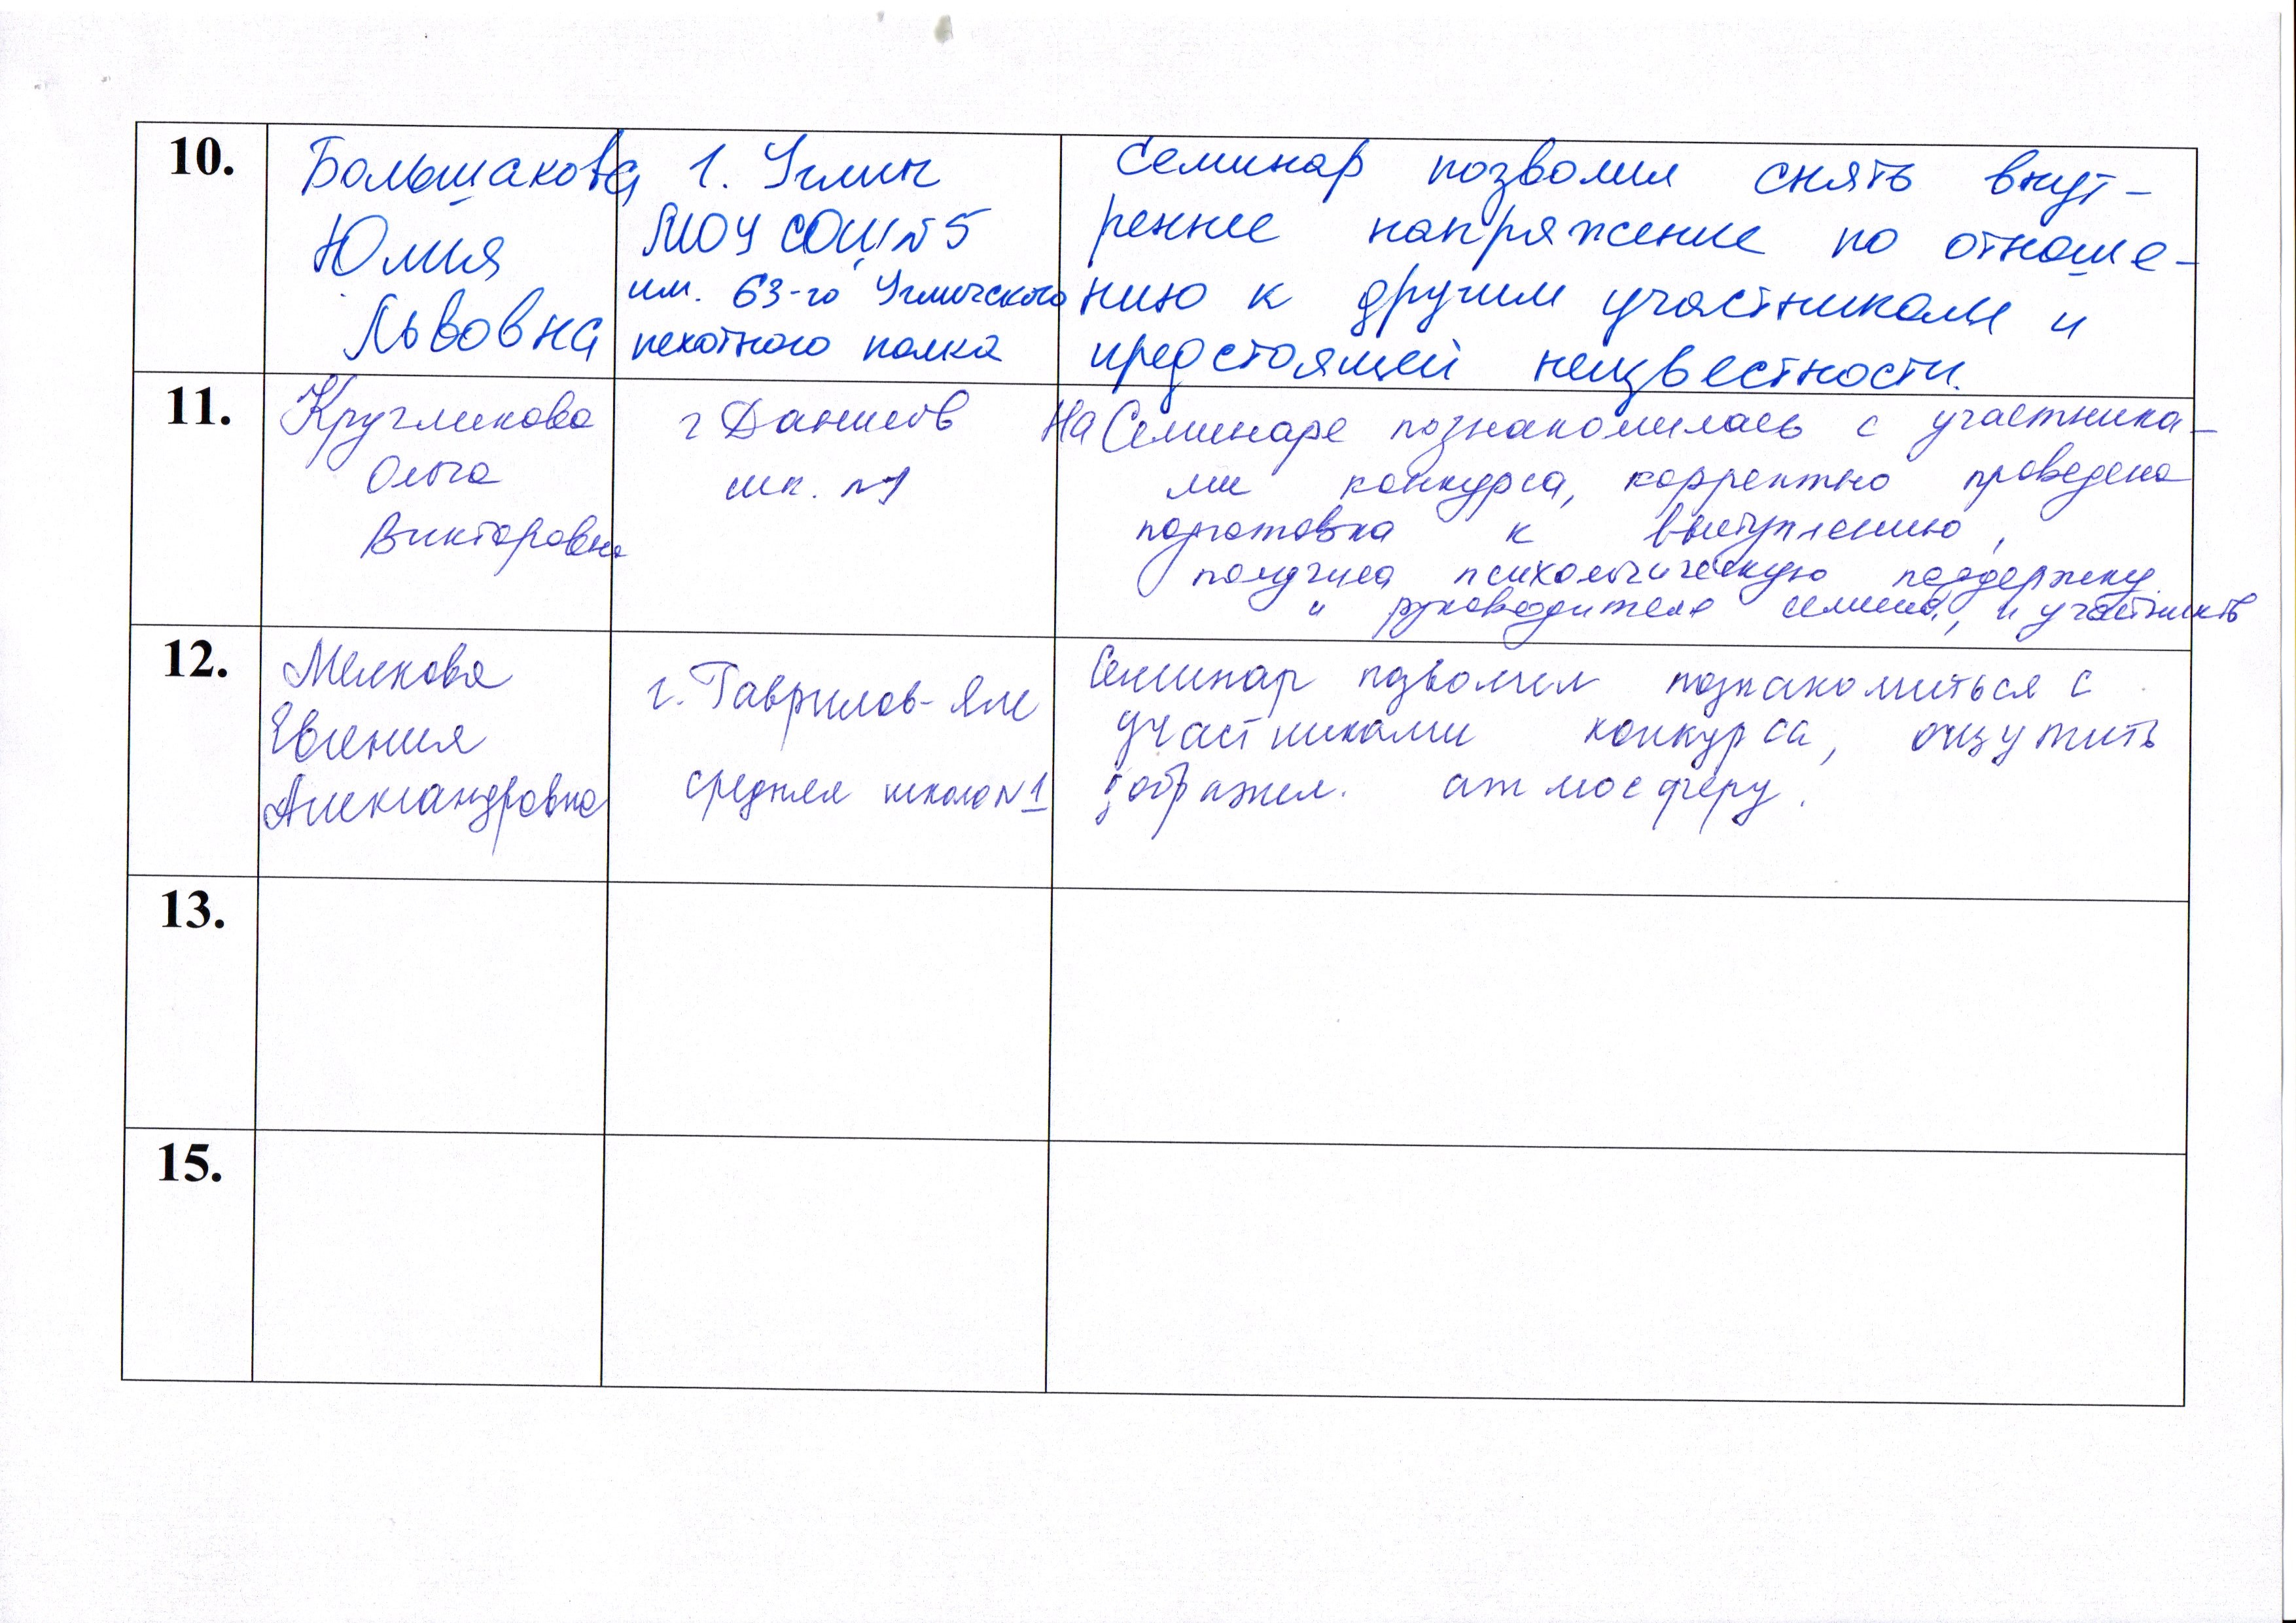 10.
Большакова
Юлия
Львовна
г. Углич
МОУ СОШ №5
им. 63-го Угличского
пехотного полка
Семинар позволил снять внут-
реннее напряжение по отноше-
нию к другим участникам и
предстоящей неизвестности.
11.
Кругликова
Ольга
Викторовна
г Данилов
шк. №1
На Семинаре познакомилась с участника-
ми конкурса, корректно проведена
подготовка к выступлению,
получила психологическую поддержку
и руководителя семина, и участников
12.
Мелкова
Евгения
Александровна
г. Гаврилов-Ям
средняя школа №1
Семинар позволил познакомиться с
участниками конкурса, ощутить
доброжел. атмосферу.
13.
15.